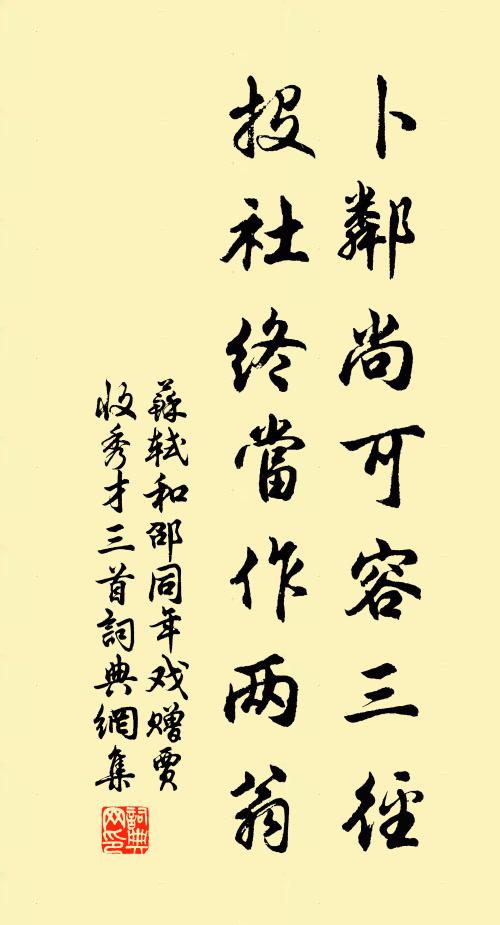 卜鄰尚可容三徑
投社終當作两翁
蘇軾和邵同年戏贈賈
收秀才三首詞典網集
詞典网印